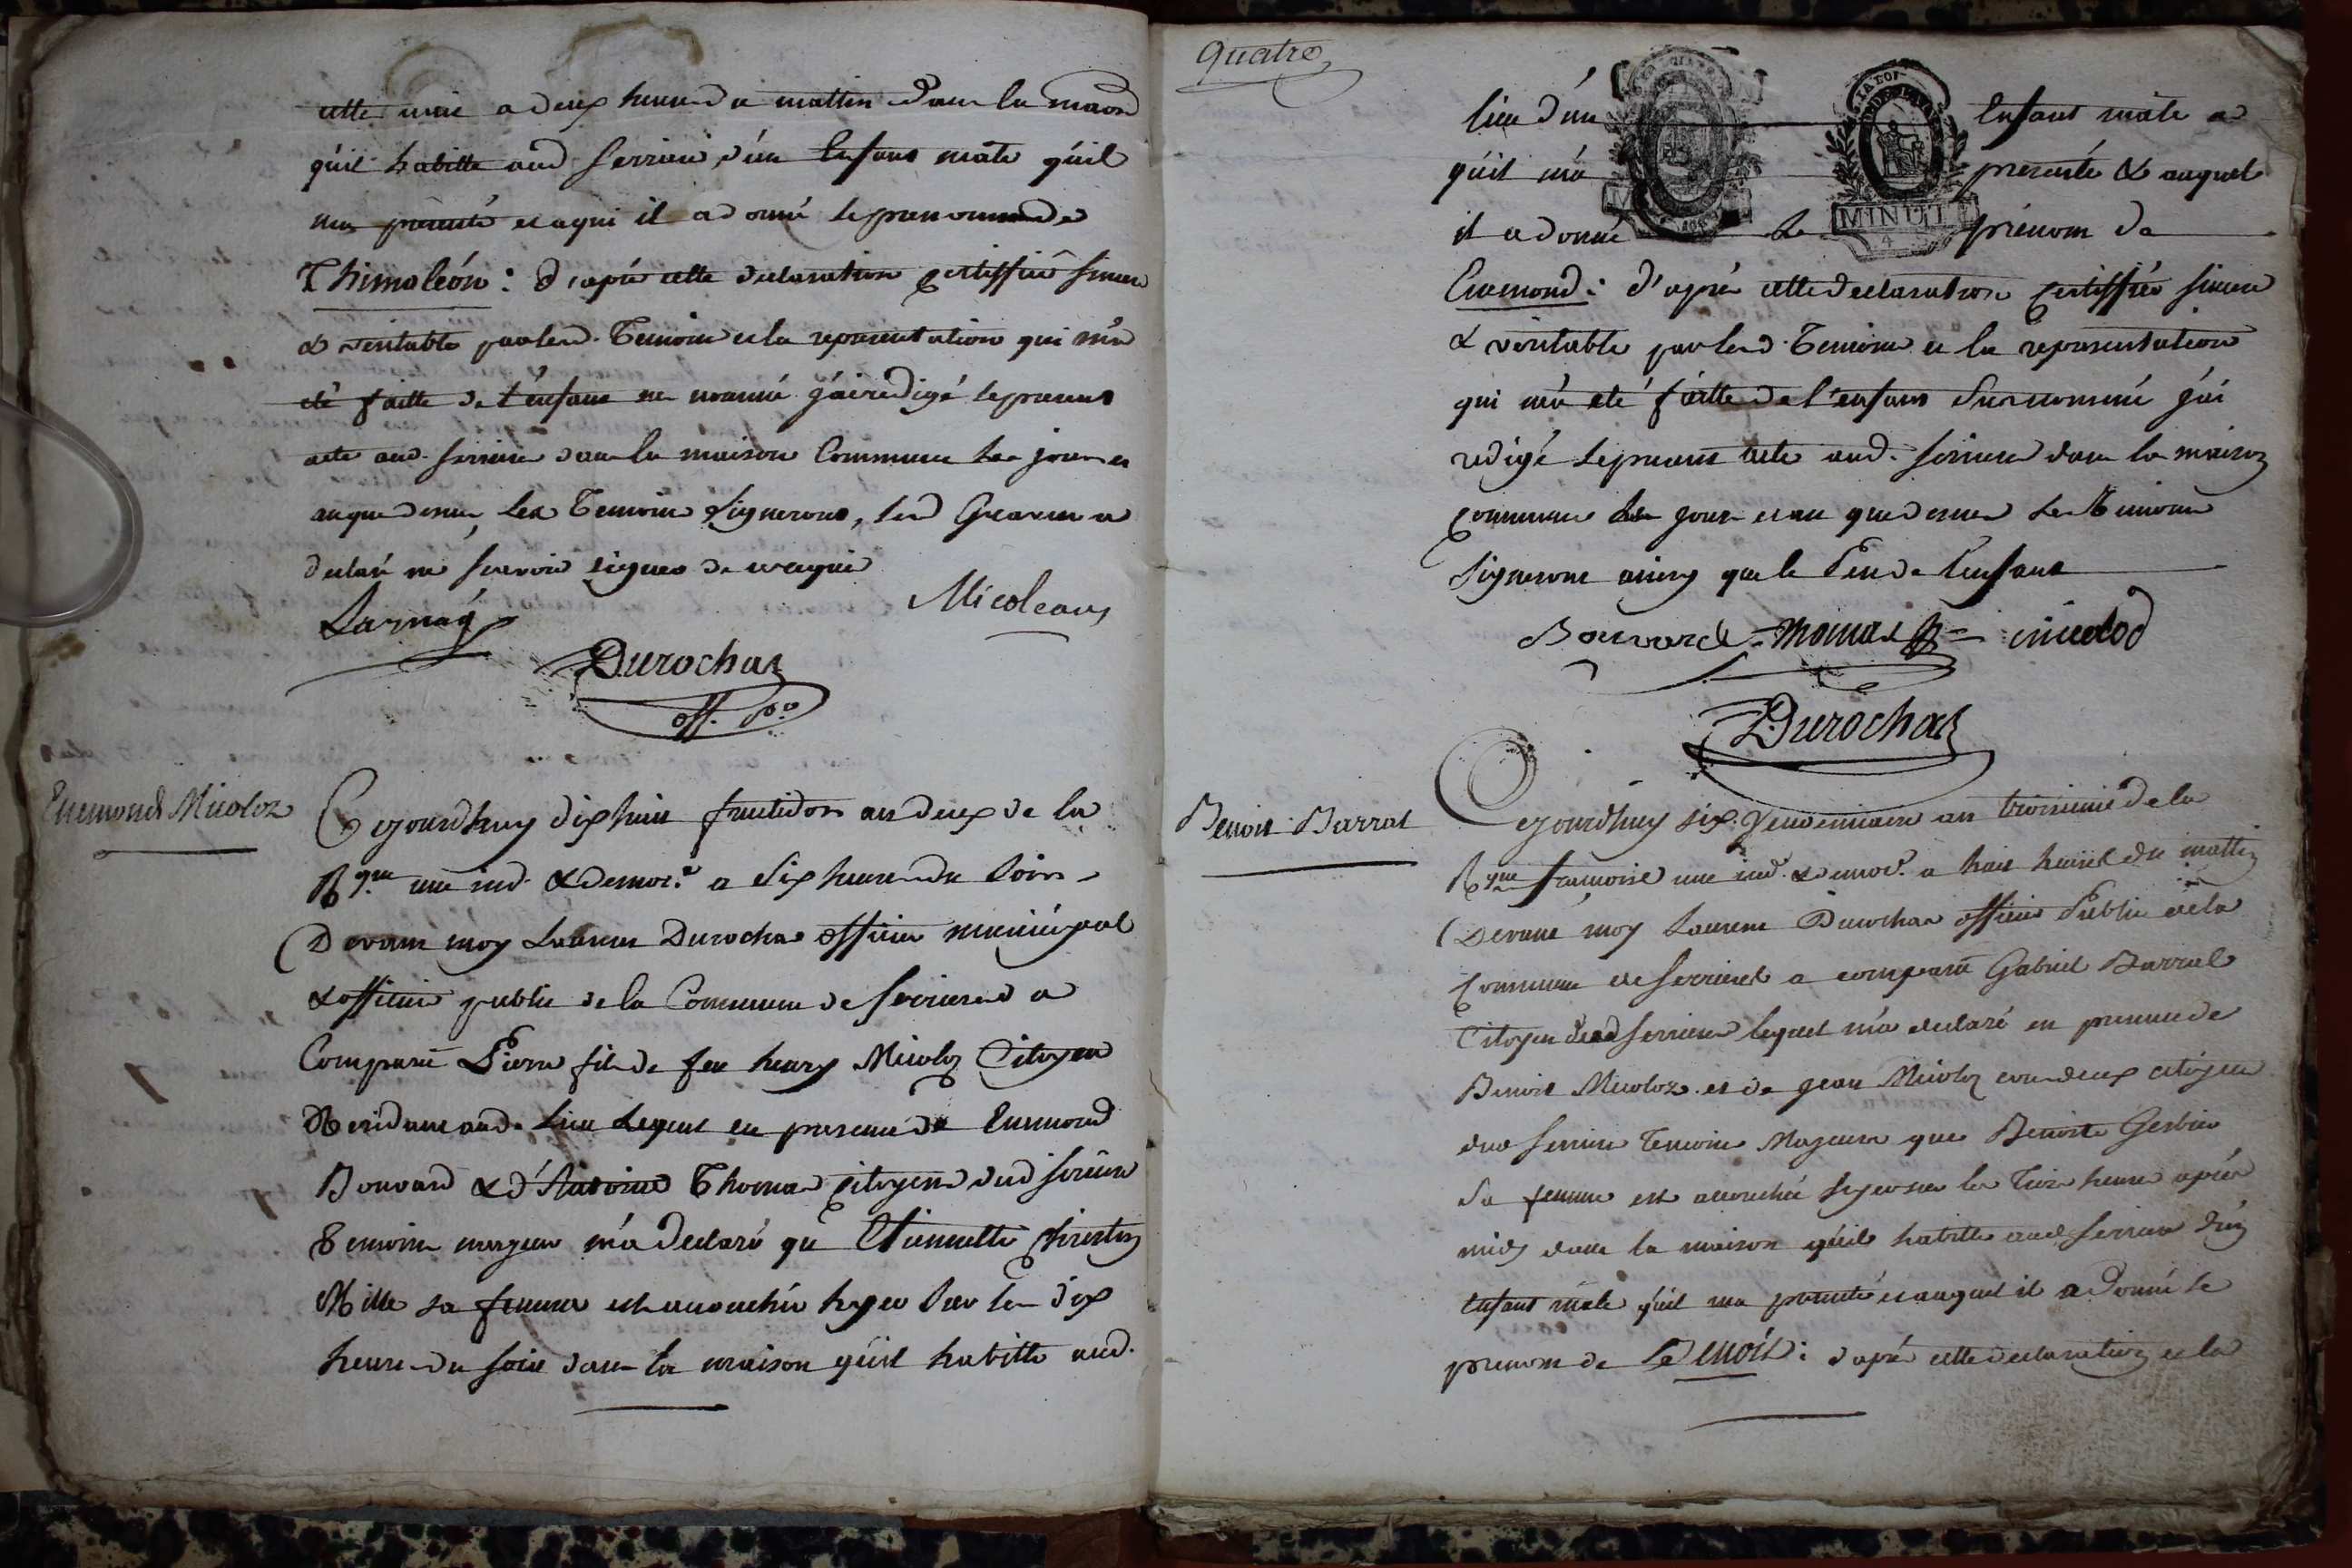 cette nuit a deux heures du mattin dans la maison
qu'il habitte aud serrieres d'un Enfant male qu'il
m'a présenté et a qui il a donné le prenom de
Thimoléon : d'après cette declaration certiffiée sincere
& veritable par lesd. Temoins et la representation qui m'a
été faitte de l'enfant nommé j'ai redigé le present
acte aud. serrieres dans la maison Commune les jour et
an que dessus les Temoins signeront, led a
declaré ne scavoir signer de ce requis
Nicoleau
Durochat
off. p.
Enemond Micoloz
Cejourdhuy dix huit fructidor an deux de la
R.que une ind. & democ. a six heures du soir
Devant moy Laurent Durochat officier municipal
& officier public de la Commune de serrieres a
Comparu Pierre fils de feu henry Micoloz Citoyen
Residant aud. Lieu Lequel en presence de Enemond
Bouvard & d'Antoine Thomas citoyens dud serrieres
Temoins majeurs m'a declaré que Etiennette
sa femme est accouchée hyer sur les dix
heures du soir dans la maison qu'il habitte aud.
Quatre
lieu d'un Enfant male
qu'il m'a presenté & auquel
il a donné le prénom de
Enemond : d'après cette declaration certiffiée sincere
& véritable par lesd. Temoins et la representation
qui m'a été faitte de l'enfant surnommé j'ai
redigé le present acte aud. serrieres dans la maison
commune les jour et an que dessus les Temoins
signeront ainsy que le Pere de l'enfant
LA LOI
MINUTE
4
Bouvard Thomas micolod
Durochat
Benoit Barral
Cejourdhuy six Vendemiaire an troisieme de la
R.que francoise une ind. & democ. a huit heures du mattin
Devant moy Laurent Durochat officier Public de la
Commune de serrieres a comparu Gabriel Barral
Citoyen dud serrieres lequel m'a declaré en presence de
Benoit Micoloz et de jean Micoloz tous deux citoyens
dud serrieres Temoins Majeurs que Benoite Gerbin
sa femme est accouchée hyer sur les Trois heures après
midy dans la maison qu'il habitte aud serrieres d'un
Enfant male qu'il m'a presenté et auquel il a donné le
prenom de Benoit : d'après cette declaration et la